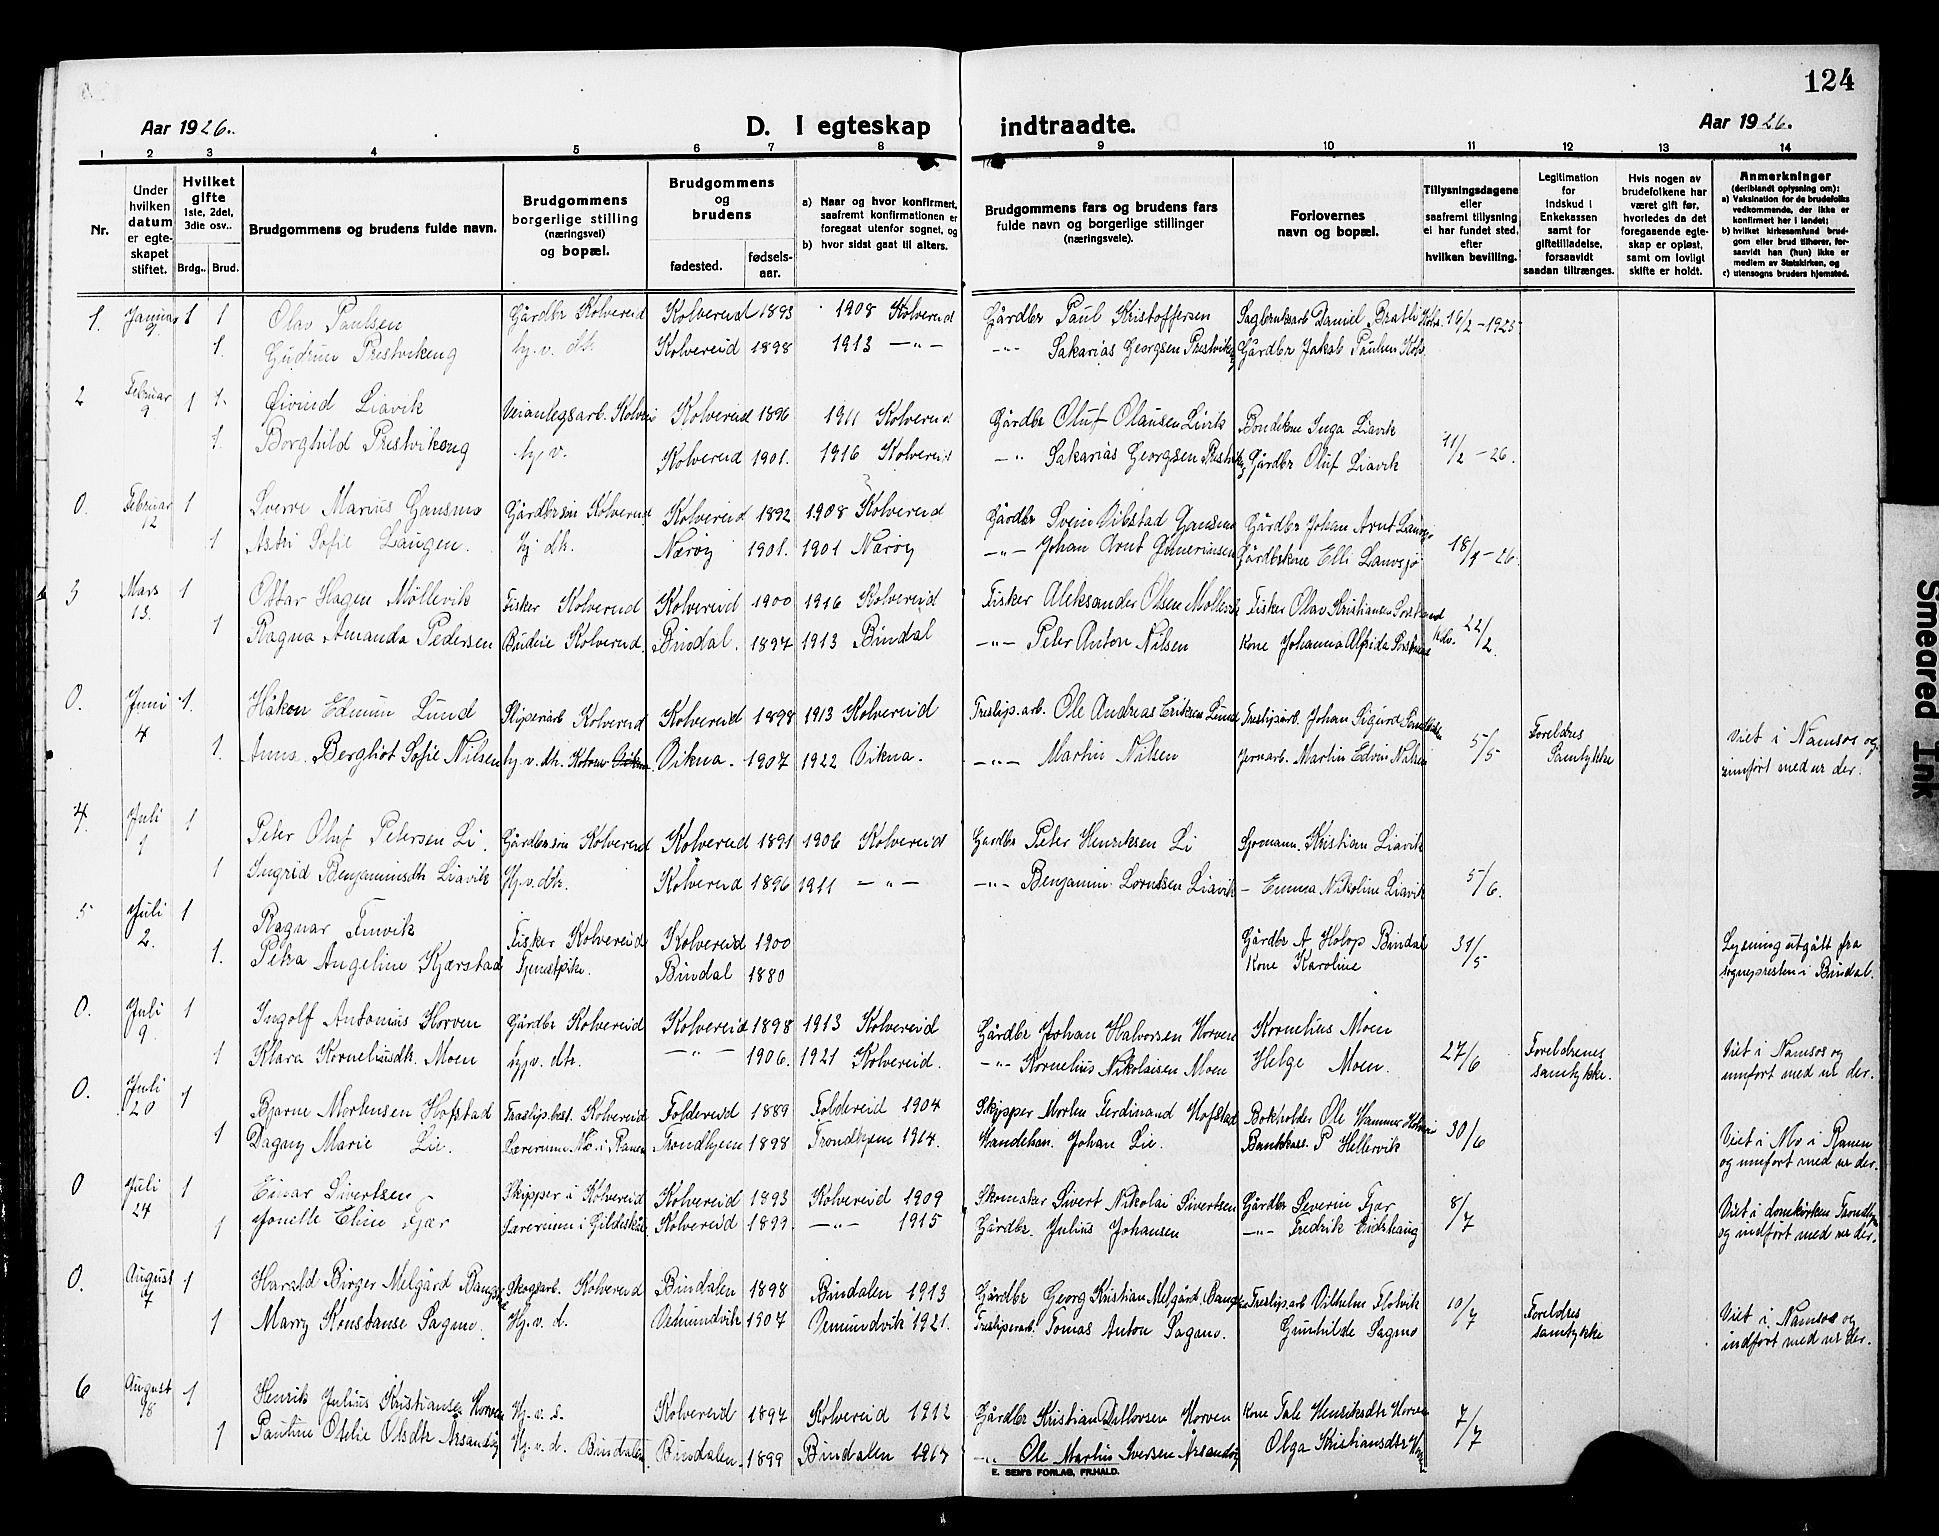 124
Aar 1926.
D. I egteskap indtraadte.
Aar 1926.
1 2 3 4 5 6 7 8 9 10 11 12 13 14
Nr.
Under hvilken datum er egteskapet stiftet.
Hvilket gifte 1ste, 2del, 3die osv..
Brdg.. Brud.
Brudgommens og brudens fulde navn.
Brudgommens borgerlige stilling (næringsvei) og bopæl.
Brudgommens og brudens
fødested. fødselsaar.
a) Naar og hvor konfirmert, saafremt konfirmationen er foregaat utenfor sognet, og
b) hvor sidst gaat til alters.
Brudgommens fars og brudens fars fulde navn og borgerlige stillinger (næringsveie).
Forlovernes navn og bopæl.
Tillysningsdagene eller saafremt tillysning ei har fundet sted, efter hvilken bevilling.
Legitimation for indskud i Enkekassen samt for giftetilladelse, forsaavidt saadan tiltrænges.
Hvis nogen av brudefolkene har været gift før, hvorledes da det foregaaende egteskap er opløst, samt om lovligt skifte er holdt.
Anmerkninger (deriblandt oplysning om):
a) Vaksination for de brudefolks vedkommende, der ikke er konfirmert her i landet;
b) hvilket kirkesamfund brudgom eller brud tilhører, forsaavidt han (hun) ikke er medlem av Statskirken, og
c) utensogns bruders hjemsted.
1. Januar 1 1 Olav Paulsen Gårdbr Kolvereid Kolvereid 1893 1908 Kolvereid Gårdbr Paul Kristoffersen Sagbruksarb Daniel Bratli Kolv. 16/2-1925
1. Gudrun Prestvikeng hj.v. dtr. Kolvereid 1898 1913 —"— —"— Sakarias Georgsen Prestvikeng Gårdbr Jakob Paulsen Kolv.
2 Februar 9 1 1. Øivind Liavik Veianlegsarb. Kolvereid Kolvereid 1896 1911 Kolvereid Gårdbr Oluf Olausen Livik Bondekone Inga Liavik
1. Borghild Prestvikeng hj v. Kolvereid 1901. 1916 Kolvereid —"— Sakarias Georgsen Prestvikeng Gårdbr Oluf Liavik 11/2-26.
0. Februar 12 1 Sverre Marius Gansmo Gårdbrsøn Kolvereid Kolvereid 1892 1908 Kolvereid Gårdbr Svein Vibstad Gansmo Gårdbr Johan Arnt
1 Astri Sofie Laugen. hj dtr. Nærøy 1901. 1901 Nærøy —"— Johan Arnt Gårdbrkone Elli 18/1-26
3 Mars 13. 1 Ottar Hagen Møllevik Fisker Kolvereid Kolvereid 1900 1916 Kolvereid Fisker Aleksander Olsen Møllevik Fisker Olav Kristiansen
1 Ragna Amanda Pedersen Budeie Kolvereid. Bindal. 1897 1913 Bindal —"— Peter Anton Nilsen Kone Johanna Alfrida Kolv. 22/2.
0. Juni 4 1. Håkon Edmun Lund Sliperiarb Kolvereid Kolvereid 1898 1913 Kolvereid Treslip.arb. Ole Andreas Eriksen Lund Treslip.arb. Johan Sigurd
1. Anna Bergliot Sofie Nilsen hj. v. dtr. Kolver Vikna Vikna. 1907 1922 Vikna. —"— Martin Nilsen Jernarb. Martin Edvin Nilsen 5/5 Foreldres Samtykke Viet i Namsos og innført med nr der.
4. Juli 1 1 Peter Oluf Petersen Li. Gårdbrsøn Kolvereid Kolvereid 1891 1906 Kolvereid Gardbr Peter Henriksen Li Sjømann. Kristian Liavik
1 Ingrid Benjaminsdtr Liavik Hj.v.dtr. Kolvereid 1896 1911 —"— —"— Benjamin Lorntsen Liavik — Emma Nikoline Liavik 5/6.
5 Juli 2. 1 Ragnar Finvik Fisker Kolvereid Kolvereid 1900 Gårdbr A Holop Bindal 31/5 Lysning utgått fra
1. Petra Angeline Kjærstad Tjenestpike. Bindal 1880 Kone Karoline sognepresten i Bindal.
0. Juli 9 1 Ingolf Antonius Horven Gårdbr Kolvereid Kolvereid 1898 1913 Kolvereid Gårdbr Johan Halvorsen Horven Kornelius Moen
1 Klara Korneliusdtr. Moen hj.v. dtr. —"— 1906. 1921 Kolvereid. —"— Kornelius Nikolaisen Moen Helge Moen. 27/6 Foreldrenes samtykke. Viet i Namsos og innført med nr der.
0. Juli 20 1 Bjarne Mortensen Hofstad Træslip.best. Kolvereid Foldereid 1889 Foldereid 1904 Skipper Morten Ferdinand Hofstad Bokholder Ole Hammer
1 Dagny Marie Lie. Lærerinne Mo i Ranen Trondhjem 1898 Trondhjem 1914. Handelsm. Johan Lie. Bankkass. P Hellesvik 30/6 Viet i Mo i Ranen og innført med nr der.
0 Juli 24 1 Einar Sivertsen Skipper i Kolvereid Kolvereid 1893 Kolvereid 1909 Skomaker Sivert Nikolai Sivertsen Gårdbr Severin Fjær 8/7 Viet i domkirken Trondhjem
1 Jonette Eline Fjær Lærerinne i Gildeskål Kolvereid 1899. —"— 1915 Gårdbr. Julius Johansen —"— Fredrik Eidshaug og indført med nr der.
0. August 7 1 Harald Birger Melgård Bangstad Skogsarb. Kolvereid Bindalen 1898 Bindalen 1913 Gårdbr Georg Kristian Melgård Treslip.arb Vilhelm Flotvik 10/7 Foreldres samtykke
1 Marry Konstanse Sagmo. Hj. v. d. Vemundvik 1907 Vemundvik 1921. Tresliperarb. Tomas Anton Sagmo. Gunhilde Sagmo Viet i Namsos og indført med nr der.
6 August 18 1 Henrik Julius Kristiansen Horven Hj. v. s. Kolvereid 1897 Kolvereid 1912 Gårdbr Kristian Ditlovsen Horven Kone Tale Henriksdtr Horven 7/7
1 Pauline Otelie Olsdtr Årsandøy Hj. v. d. Bindalen Bindalen. 1899 Bindalen 1917 —"— Ole Martin Iversen Årsandøy Olga Kristiansdtr Horven
E. SEM'S FORLAG, FR.HALD.
Smeared Ink